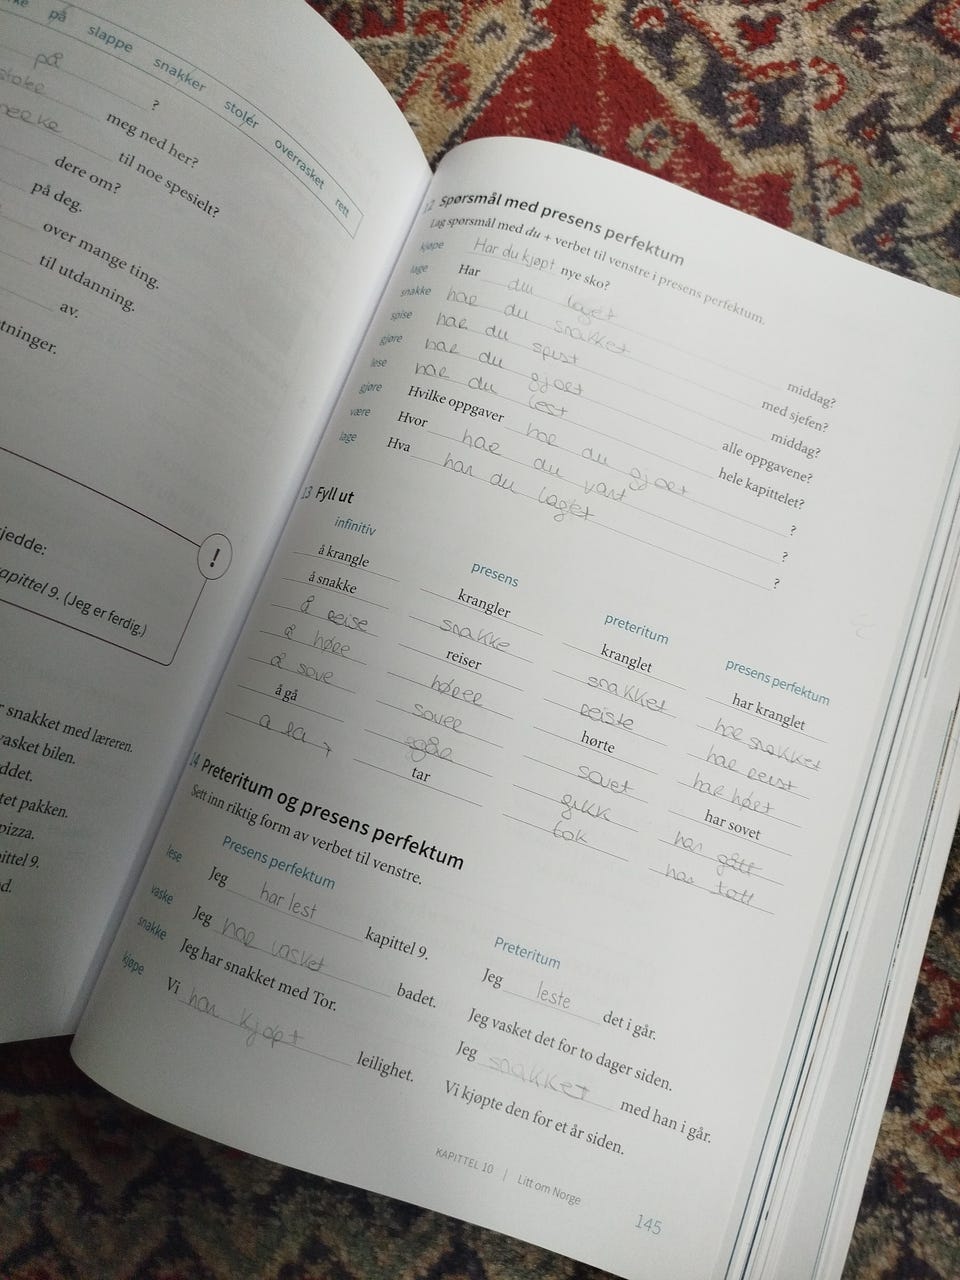 på slappe snakker stoler overrasket rett
på ?
stoler meg ned her?
til noe spesielt?
dere om?
på deg.
over mange ting.
til utdanning.
av.
tninger.
!
jedde:
apittel 9. (Jeg er ferdig.)
snakket med læreren.
vasket bilen.
ddet.
tet pakken.
pizza.
ittel 9.
d.
12 Spørsmål med presens perfektum
Lag spørsmål med du + verbet til venstre i presens perfektum.
kjøpe Har du kjøpt nye sko?
lage Har du laget middag?
snakke har du snakket med sjefen?
spise har du spist middag?
gjøre har du gjort alle oppgavene?
lese har du lest hele kapittelet?
gjøre Hvilke oppgaver har du gjort ?
være Hvor har du vært ?
lage Hva har du laget ?
13 Fyll ut
infinitiv presens preteritum presens perfektum
å krangle krangler kranglet har kranglet
å snakke snakke snakket har snakket
å reise reiser reiste har reist
å høre hører hørte har hørt
å sove sover sovet har sovet
å gå går gikk har gått
å ta tar tok har tatt
14 Preteritum og presens perfektum
Sett inn riktig form av verbet til venstre.
Presens perfektum Preteritum
lese Jeg har lest kapittel 9. Jeg leste det i går.
vaske Jeg har vasket badet. Jeg vasket det for to dager siden.
snakke Jeg har snakket med Tor. Jeg snakket med han i går.
kjøpe Vi har kjøpt leilighet. Vi kjøpte den for et år siden.
KAPITTEL 10 | Litt om Norge
145